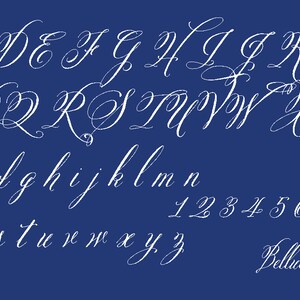 D E F G H I J K
Q R S T U V W X
d g h i j k l m n
1 2 3 4 5 6
s t u v w x y z